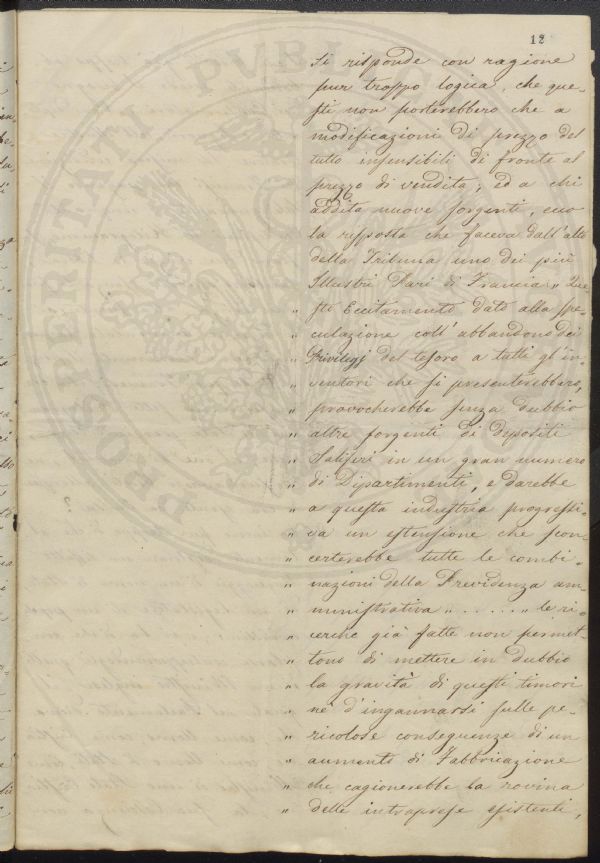 12
si risponde con ragione
pur troppo logica, che que-
sti non porterebbero che a
modificazioni di prezzo del
tutto insensibili di fronte al
prezzo di vendita, ed a chi
addita nuove sorgenti, ecco
la risposta che faceva dall'alto
della Tribuna uno dei più
Illustri Pari di Francia „ Que-
„ sto Eccitamento dato alla spe-
„ culazione coll' abbandono dei
„ Privilegj del tesoro a tutti gl'in-
„ ventori che si presenterebbero,
„ provocherebbe senza dubbio
„ altre sorgenti di depositi
„ Saliferi in un gran numero
„ di Dipartimenti, e darebbe
„ a questa industria progressi-
„ va un estensione che scon-
„ certerebbe tutte le combi-
„ nazioni della Previdenza am-
„ ministrativa „ . . . . . „ le ri-
„ cerche già fatte non permet-
„ tono di mettere in dubbio
„ la gravità di questi timori
„ nè d'ingannarsi sulle pe-
„ ricolose conseguenze di un
„ aumento di Fabbricazione
„ che cagionerebbe la rovina
„ delle intraprese esistenti,
PROSPERITATI PVBLIC